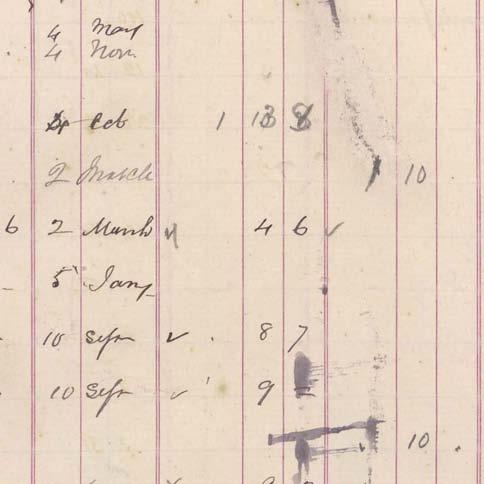 4 May
4 Novr
Feb 1
2 March 10
6 2 March 4 6 ✓
5 Jany
10 Sepr ✓ 8 7
10 Sepr ✓ 9
10